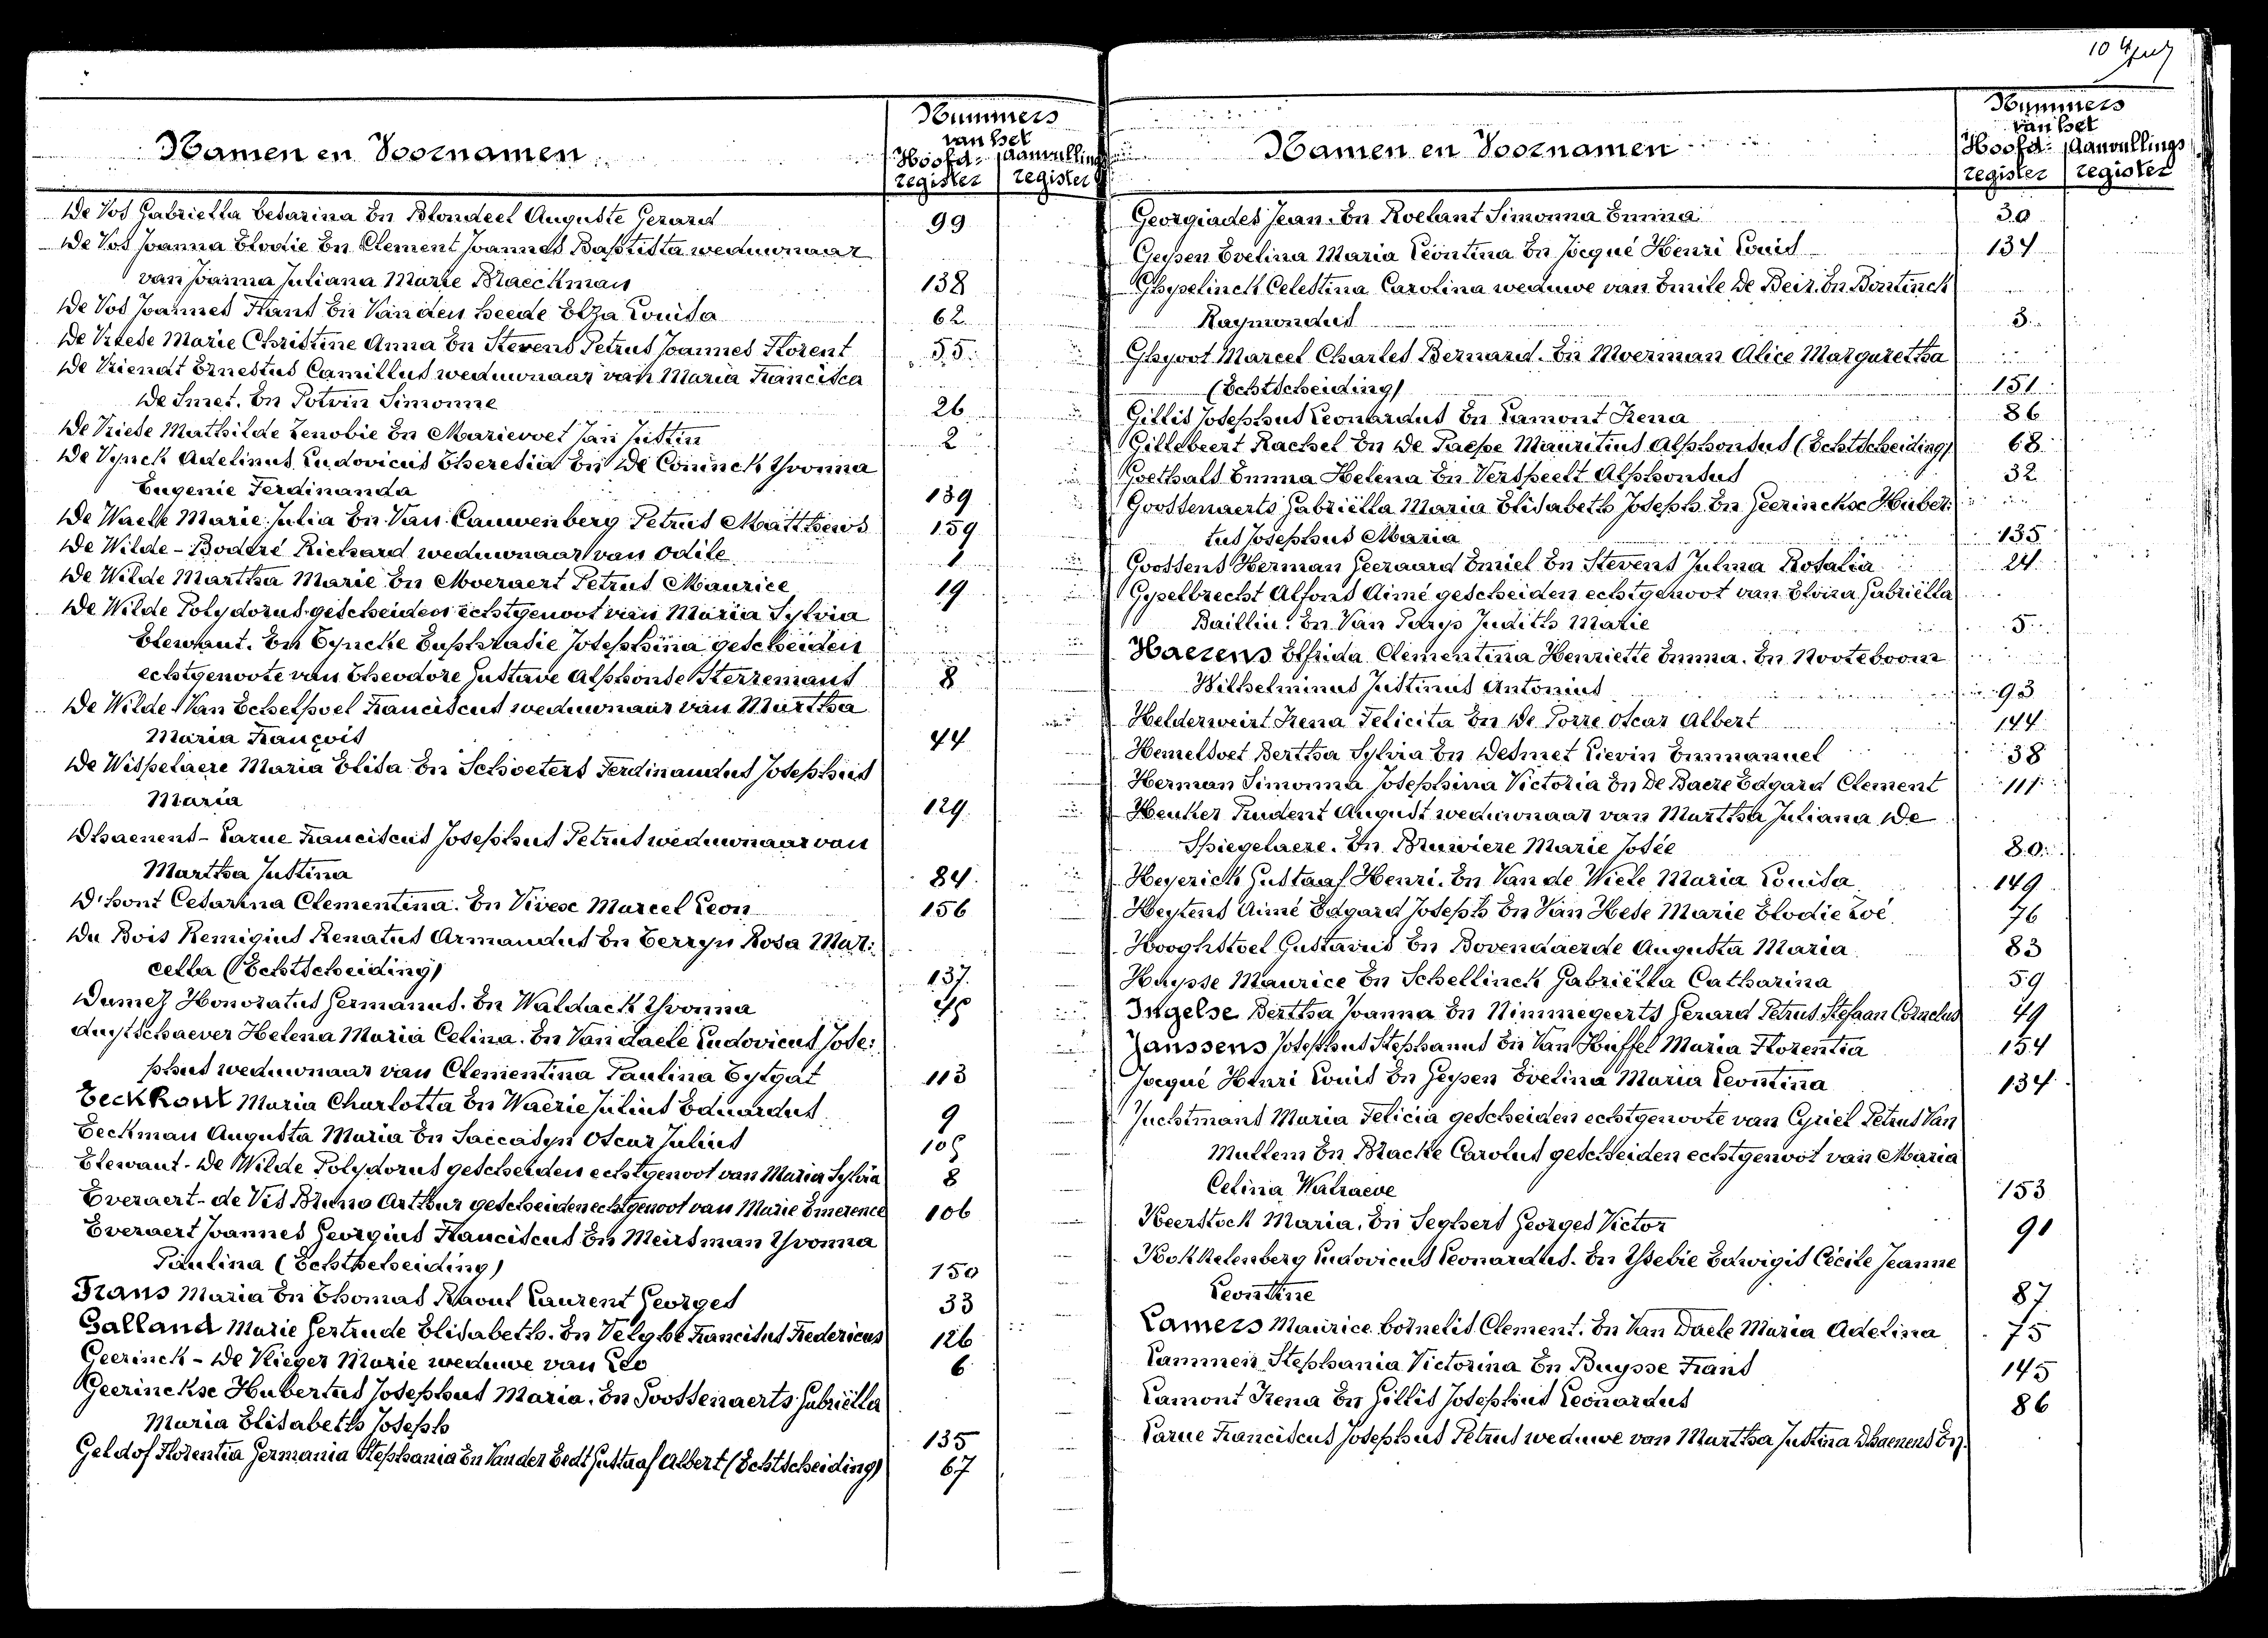 Namen en Voornamen
Nummers
van het
Hoofd- Aanvullings
register register
De Vos Gabriella Cesarina En Blondeel Auguste Gerard 99
De Vos Joanna Elodie En Clement Joannes Baptista weduwnaar
van Joanna Juliana Marie Braeckman 138
De Vos Joannes Frans En Van den heede Elza Louisa 62
De Vreese Marie Christine Anna En Stevens Petrus Joannes Florent 55
De Vriendt Ernestus Camillus weduwnaar van Maria Francisca
De Smet. En Potvin Simonne 26
De Vriese Mathilde Zenobie En Marievoet Jan Justin 2
De Vynck Adelinus Ludovicus Theresia En De Coninck Yvonna
Eugenie Ferdinanda 139
De Waele Marie Julia En Van Cauwenberg Petrus Mattheus 159
De Wilde - Boderé Richard weduwnaar van Odile 1
De Wilde Martha Marie En Moeraert Petrus Maurice 19
De Wilde Polydorus gescheiden echtgenoot van Maria Sylvia
Elewaut. En Eyncke Euphrasie Josephina gescheiden
echtgenoote van Theodore Gustave Alphonse Sterremans 8
De Wilde Van Echelpoel Franciscus weduwnaar van Martha
Maria François 44
De Wispelaere Maria Elisa En Schoeters Ferdinandus Josephus
Maria 129
Dhaenens - Larue Franciscus Josephus Petrus weduwnaar van
Martha Justina 84
D'hont Cesarina Clementina. En Vivex Marcel Leon 156
Du Bois Remigius Renatus Armandus En Terryn Rosa Mar:
cella (Echtscheiding) 137
Dumez Honoratus Germanus. En Waldack Yvonna
duytschaever Helena Maria Celina. En Van daele Ludovicus Jose:
phus weduwnaar van Clementina Paulina Tytgat 113
Eeckhout Maria Charlotta En Waerie Julius Eduardus 9
Eeckman Augusta Maria En Saccasyn Oscar Julius
Elewaut - De Wilde Polydorus gescheiden echtgenoot van Maria Sylvia 8
Everaert - de Vis Bruno Arthur gescheiden echtgenoot van Marie Emerence 106
Everaert Joannes Georgius Franciscus En Meirsman Yvonna
Paulina (Echtscheiding) 150
Frans Maria En Thomas Raoul Laurent Georges 33
Galland Marie Gertrude Elisabeth. En Velghe Francisus Fredericus 126
Geerinck - De Vlieger Marie weduwe van Leo 6
Geerinckx Hubertus Josephus Maria. En Goossenaerts Gabriëlla
Maria Elisabeth Joseph 135
Geldof Florentia Germania Stephania En Van der Eedt Gustaaf Albert (Echtscheiding) 67
Namen en Voornamen
Nummers
van het
Hoofd- Aanvullings
register register
Georgiades Jean. En Roelant Simonna Emma 30
Geysen Evelina Maria Leontina En Jocqué Henri Louis 134
Ghyselinck Celestina Carolina weduwe van Emile De Beir. En Bontinck
Raymondus 3
Ghyoot Marcel Charles Bernard. En Moerman Alice Margaretha
(Echtscheiding) 151
Gillis Josephus Leonardus En Lamont Irena 86
Gillebeert Rachel En De Paepe Mauritius Alphonsus (Echtscheiding) 68
Goethals Emma Helena En Verspeelt Alphonsus 32
Goossenaerts Gabriëlla Maria Elisabeth Joseph. En Geerinckx Huber:
tus Josephus Maria 135
Goossens Herman Geeraard Emiel En Stevens Julma Rosalia 24
Gyselbrecht Alfons Aimé gescheiden echtgenoot van Elvira Gabriëlla
Baillin. En Van Parys Judith Marie 5
Haerens Elfrida Clementina Henriette Emma. En Nooteboom
Wilhelminus Justinus Antonius 93
Helderweirt Irena Felicita En De Porre Oscar Albert 144
Hemelsoet Bertha Sylvia En Desmet Lievin Emmanuel 38
Herman Simonna Josephina Victoria En De Baere Edgard Clement 111
Heuker Prudent August weduwnaar van Martha Juliana De
Spiegelaere. En Bruwiere Marie Josée 80
Heyerick Gustaaf Henri. En Van de Wiele Maria Louisa 149
Heytens Aimé Edgard Joseph En Van Hese Marie Elodie Zoé 76
Hooghstoel Gustavus En Bovendaerde Augusta Maria 83
Huysse Maurice En Schellinck Gabriëlla Catharina 59
Ingelse Bertha Joanna En Nimmegeerts Gerard Petrus Stefaan Cornelus 49
Janssens Josephus Stephanus En Van Huffel Maria Florentia 154
Jocqué Henri Louis En Geysen Evelina Maria Leontina 134
Juchtmans Maria Felicia gescheiden echtgenoote van Cyriel Petrus Van
Mullem En Bracke Carolus gescheiden echtgenoot van Maria
Celina Walraeve 153
Keerstock Maria. En Seghers Georges Victor 91
Kokkelenberg Ludovicus Leonardus. En Ysebie Edwigis Cécile Jeanne
Leontine 87
Lamers Maurice Cornelis Clement. En Van Daele Maria Adelina 75
Lammen Stephania Victorina En Buysse Frans 145
Lamont Irena En Gillis Josephus Leonardus 86
Larue Franciscus Josephus Petrus weduwe van Martha Justina Dhaenens En